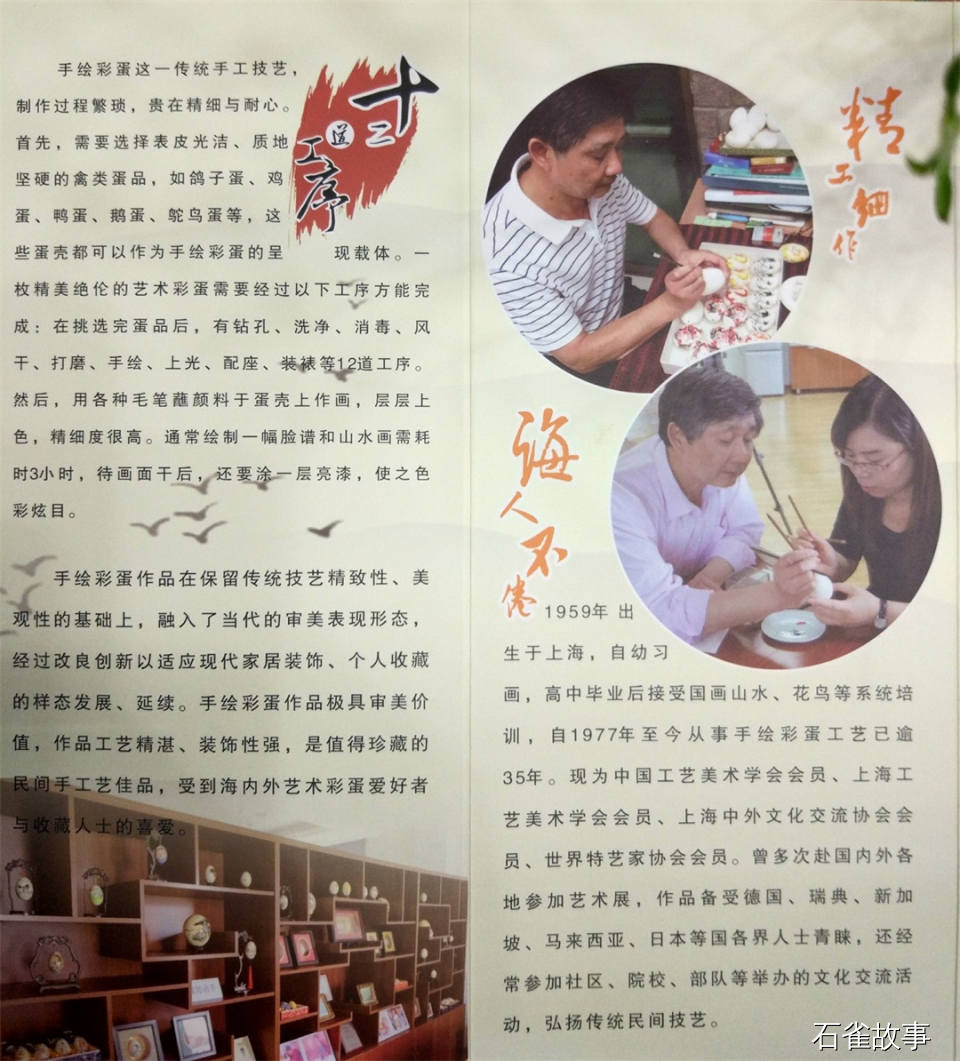 手绘彩蛋这一传统手工技艺，
制作过程繁琐，贵在精细与耐心。
首先，需要选择表皮光洁、质地
坚硬的禽类蛋品，如鸽子蛋、鸡
蛋、鸭蛋、鹅蛋、鸵鸟蛋等，这
些蛋壳都可以作为手绘彩蛋的呈现载体。一
枚精美绝伦的艺术彩蛋需要经过以下工序方能完
成：在挑选完蛋品后，有钻孔、洗净、消毒、风
干、打磨、手绘、上光、配座、装裱等12道工序。
然后，用各种毛笔蘸颜料于蛋壳上作画，层层上
色，精细度很高。通常绘制一幅脸谱和山水画需耗
时3小时，待画面干后，还要涂一层亮漆，使之色
彩炫目。
十二道工序
手绘彩蛋作品在保留传统技艺精致性、美
观性的基础上，融入了当代的审美表现形态，
经过改良创新以适应现代家居装饰、个人收藏
的样态发展、延续。手绘彩蛋作品极具审美价
值，作品工艺精湛、装饰性强，是值得珍藏的
民间手工艺佳品，受到海内外艺术彩蛋爱好者
与收藏人士的喜爱。
精工细作
诲人不倦
1959年 出
生于上海，自幼习
画，高中毕业后接受国画山水、花鸟等系统培
训，自1977年至今从事手绘彩蛋工艺已逾
35年。现为中国工艺美术学会会员、上海工
艺美术学会会员、上海中外文化交流协会会
员、世界特艺家协会会员。曾多次赴国内外各
地参加艺术展，作品备受德国、瑞典、新加
坡、马来西亚、日本等国各界人士青睐，还经
常参加社区、院校、部队等举办的文化交流活
动，弘扬传统民间技艺。
石雀故事